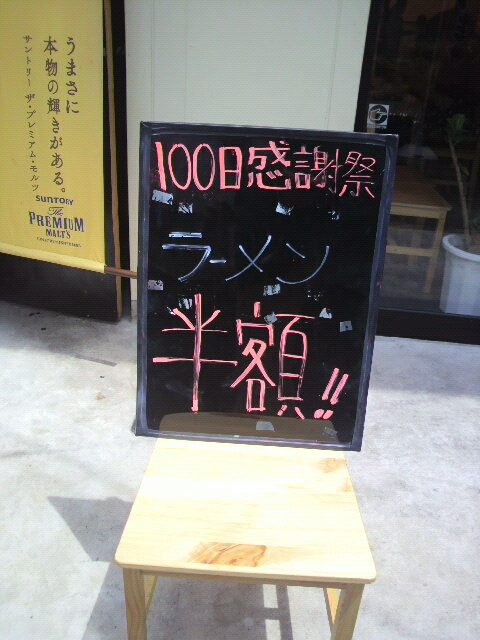 うまさに
本物の輝きがある。
サントリー ザ・プレミアム・モルツ
SUNTORY
The
PREMIUM
MALT'S
100日感謝祭
ラーメン
半額!!